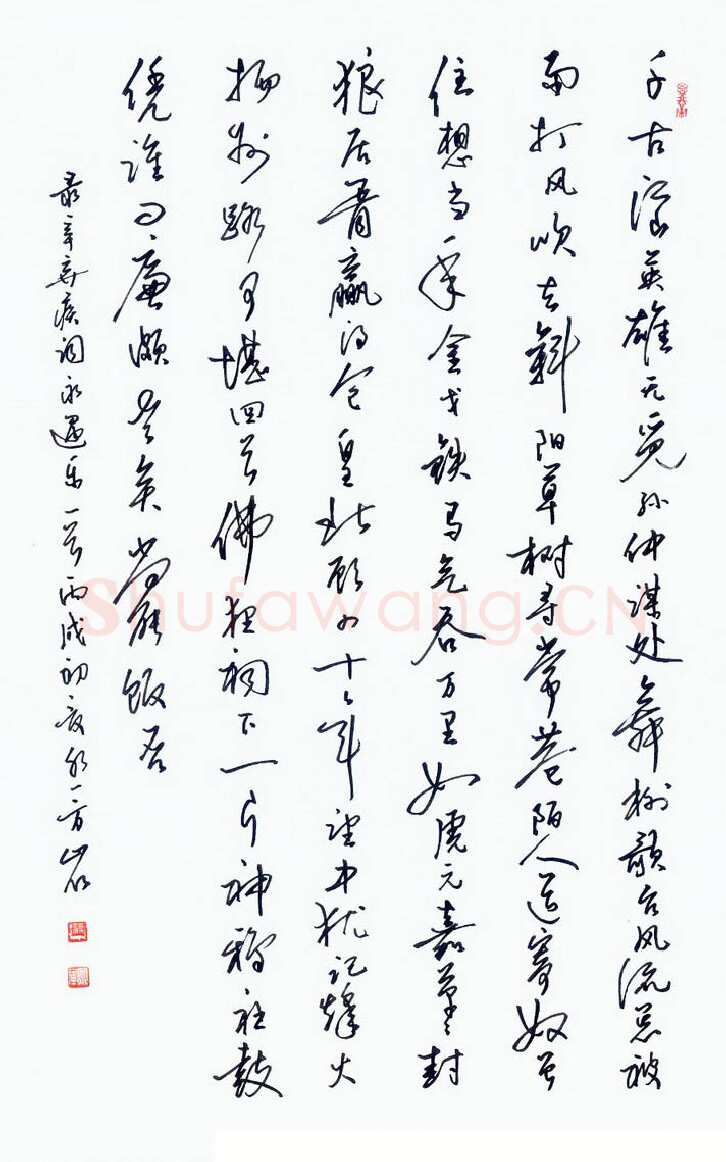 千古江山英雄无觅孙仲谋处舞榭歌台风流总被
雨打风吹去斜阳草树寻常巷陌人道寄奴曾
住想当年金戈铁马气吞万里如虎元嘉草草封
狼居胥赢得仓皇北顾四十三年望中犹记烽火
扬州路可堪回首佛狸祠下一片神鸦社鼓
凭谁问廉颇老矣尚能饭否
录辛弃疾词永遇乐一首丙戌初夏
Shufawang.CN